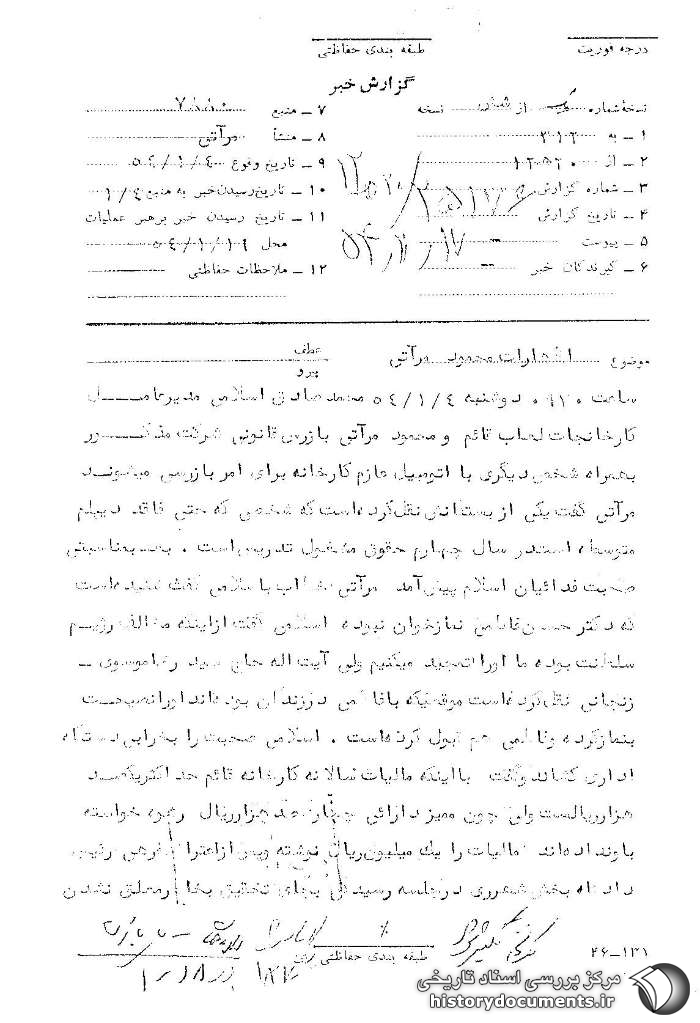 درجه فوریت
طبقه بندی حفاظتی
گزارش خبر
نسخهٔ شماره یک از نسخه
۱ ــ به ۳۱۲
۲ ــ از ۱۲۵۲۰
۳ ــ شماره گزارش
۴ ــ تاریخ گزارش
۵ ــ پیوست ــ
۶ ــ گیرندگان خبر ــ
۷ ــ منبع ۷۸۸۰
۸ ــ منشأ مرآتی
۹ ــ تاریخ وقوع ۵۴/۱/۴
۱۰ ــ تاریخ رسیدن خبر به منبع ۱/۴
۱۱ ــ تاریخ رسیدن خبر برهبر عملیات
محل ۵۴/۱/۱۶
۱۲ ــ ملاحظات حفاظتی
موضوع اظهارات محمود مرآتی
عطف
پیرو
ساعت ۰۹۳۰ دوشنبه ۵۴/۱/۴ محمد صادق اسلامی مدیرعامل
کارخانجات لعاب قائم و محمود مرآتی بازرس قانونی شرکت مذکور
بهمراه شخص دیگری با اتومبیل عازم کارخانه برای امر بازرسی میشوند
مرآتی گفت یکی از بستگانش نقل کرده است که شخصی که حتی فاقد دیپلم
متوسطه است در سال چهارم حقوق مشغول تدریس است . بعد بمناسبتی
صحبت فدائیان اسلام پیش آمد مرآتی خطاب با سلامی گفت شنیده است
که دکتر حسین فاطمی نمازخوان نبوده اسلامی گفت از اینکه مخالف رژیم
سلطنت بوده ما او را تمجید میکنیم ولی آیت اله حاج سید رضا موسوی ــ
زنجانی نقل کرده است موقعیکه با فاطمی در زندان بوده اند او را نصیحت
بنماز کرده و فاطمی هم قبول کرده است . اسلامی صحبت را بخرابی دستگاه
اداری کشاند و گفت با اینکه مالیات سالانه کارخانه قائم حداکثر یکصد
هزار ریالست ولی چون ممیز دارائی چهارصد هزار ریال رشوه خواسته
باو نداده اند مالیات را یک میلیون ریال نوشته و پس از اعتراض رئیس
دادگاه بخش شهرری در جلسه رسیدگی بجای تحقیق بخاطر معلق نشدن
طبقه بندی حفاظتی
۲۶ــ۱۳۱
مرکز بررسی اسناد تاریخی
historydocuments.ir